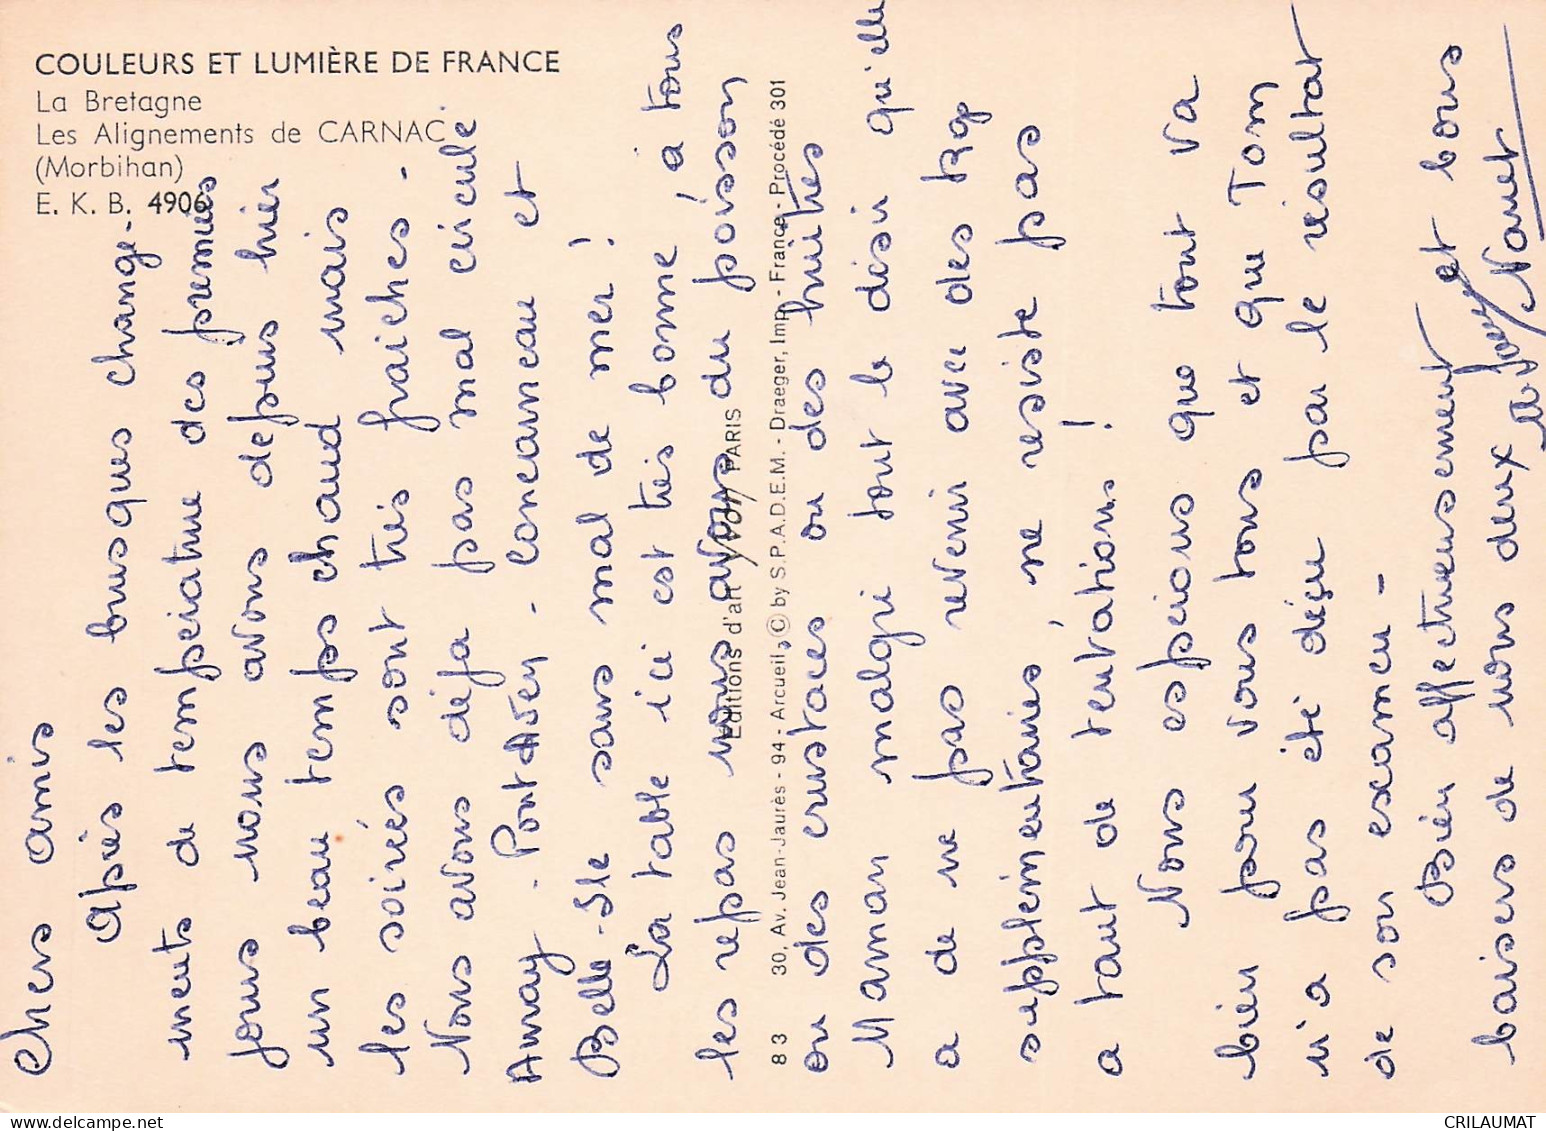 COULEURS ET LUMIÈRE DE FRANCE
La Bretagne
Les Alignements de CARNAC
(Morbihan)
E. K. B. 4906
Editions d'art YVON PARIS
83 30, Av. Jean-Jaurès - 94 - Arcueil, © by S.P.A.D.E.M. - Draeger, Imp. - France - Procédé 301
Chers amis
Après les brusques change-
ments de température des premiers
jours nous avons depuis hier
un beau temps chaud mais
les soirées sont très fraiches -
Nous avons déja pas mal circulé
Auray - Pont Aven - Concarneau et
Belle-Isle sans mal de mer !
La table ici est très bonne, à tous
les repas nous avons du poisson
ou des crustacés ou des huitres
Maman malgré tout le désir qu'elle
a de ne pas revenir avec des kgs
supplémentaires, ne resiste pas
a tant de tentations !
Nous espérons que tout va
bien pour vous tous et que Tom
n'a pas été déçu par le résultat
de son examen -
Bien affectueusement et bons
baisers de nous deux
Nanet
CRILAUMAT